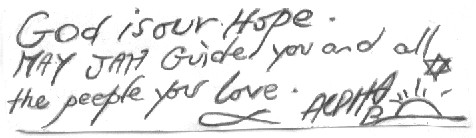 God is our Hope.
MAY JAH Guide you and all
the people you love. ALPHA B